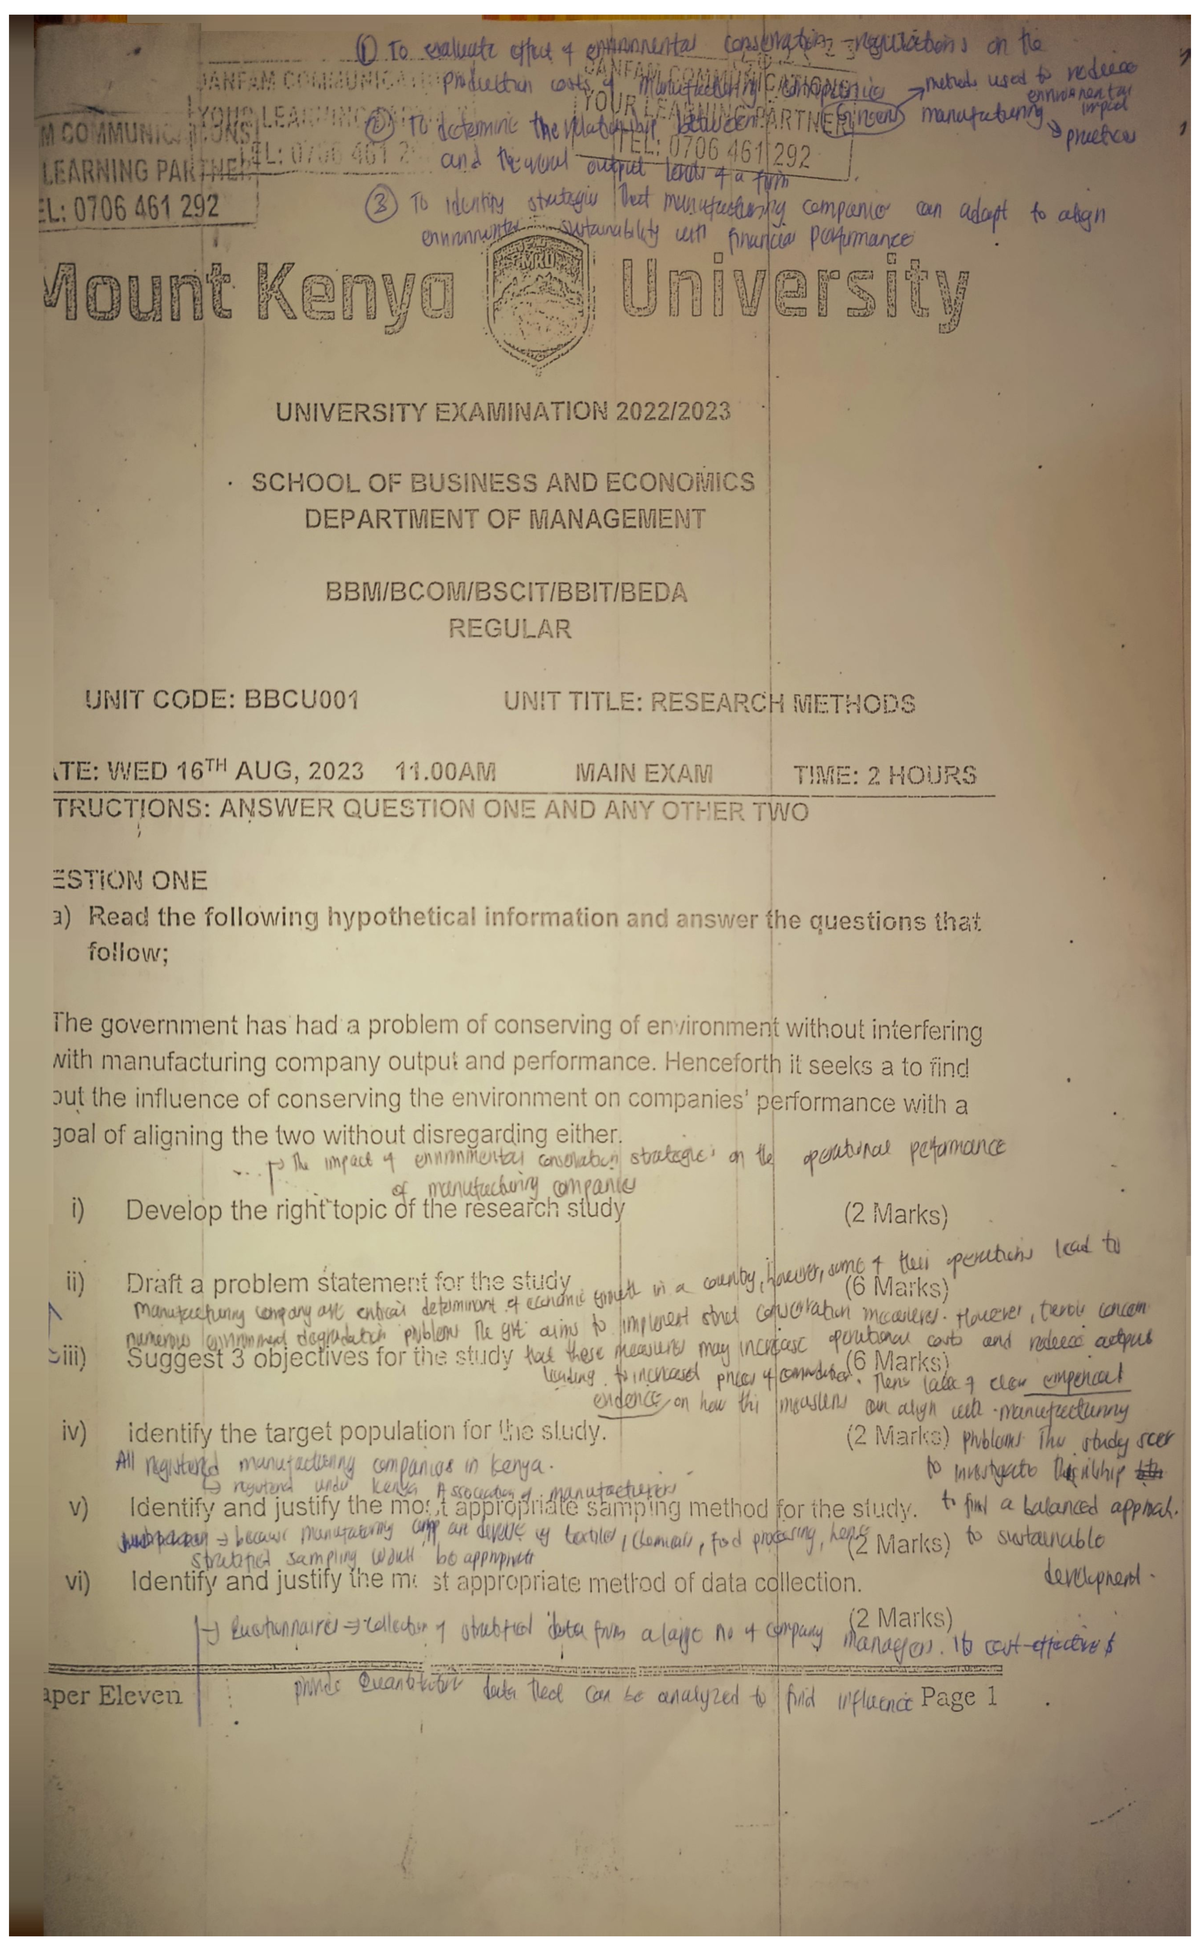 ① To evaluate effect of environmental conservation regulations on the
production costs of manufacturing companies
methods used to reduce
environmental
impact
② To determine the relationship between green manufacturing practices
and the overall output levels of a firm
③ To identify strategies that manufacturing companies can adapt to align
environmental sustainability with financial performance
DANFAM COMMUNICATIONS
YOUR LEARNING PARTNER
TEL: 0706 461 292
M COMMUNICATIONS
LEARNING PARTNER
EL: 0706 461 292
Mount Kenya University
UNIVERSITY EXAMINATION 2022/2023
SCHOOL OF BUSINESS AND ECONOMICS
DEPARTMENT OF MANAGEMENT
BBM/BCOM/BSCIT/BBIT/BEDA
REGULAR
UNIT CODE: BBCU001 UNIT TITLE: RESEARCH METHODS
ATE: WED 16TH AUG, 2023 11.00AM MAIN EXAM TIME: 2 HOURS
TRUCTIONS: ANSWER QUESTION ONE AND ANY OTHER TWO
ESTION ONE
a) Read the following hypothetical information and answer the questions that
follow;
The government has had a problem of conserving of environment without interfering
with manufacturing company output and performance. Henceforth it seeks a to find
out the influence of conserving the environment on companies' performance with a
goal of aligning the two without disregarding either.
→ The impact of environmental conservation strategies on the operational performance
of manufacturing companies
i) Develop the right topic of the research study (2 Marks)
ii) Draft a problem statement for the study (6 Marks)
manufacturing company are critical determinant of economic growth in a country, however, some of their operations lead to
numerous environment degradation problems The gvt aims to implement strict conservation measures. However, concern
iii) Suggest 3 objectives for the study (6 Marks)
that these measures may increase operational costs and reduce output
leading to increased prices of commodities. Theres lack of clear empirical
evidence on how this measures can align with manufacturing
iv) identify the target population for the study. (2 Marks)
problems The study seek
All registered manufacturing companies in Kenya.
to investigate
↳ registered under Kenya Association of manufacturers
v) Identify and justify the most appropriate samping method for the study.
to find a balanced approach.
⇒ because manufacturing comp are diverse eg textiles, chemicals, food processing, hence (2 Marks)
to sustainable
stratified sampling would be appropriate
development.
vi) Identify and justify the most appropriate method of data collection.
(2 Marks)
→ Questionnaires ⇒ collection of statistical data from a large no of company managers. Its cost-effective &
provide Quantitative data that can be analyzed to find influence
aper Eleven Page 1